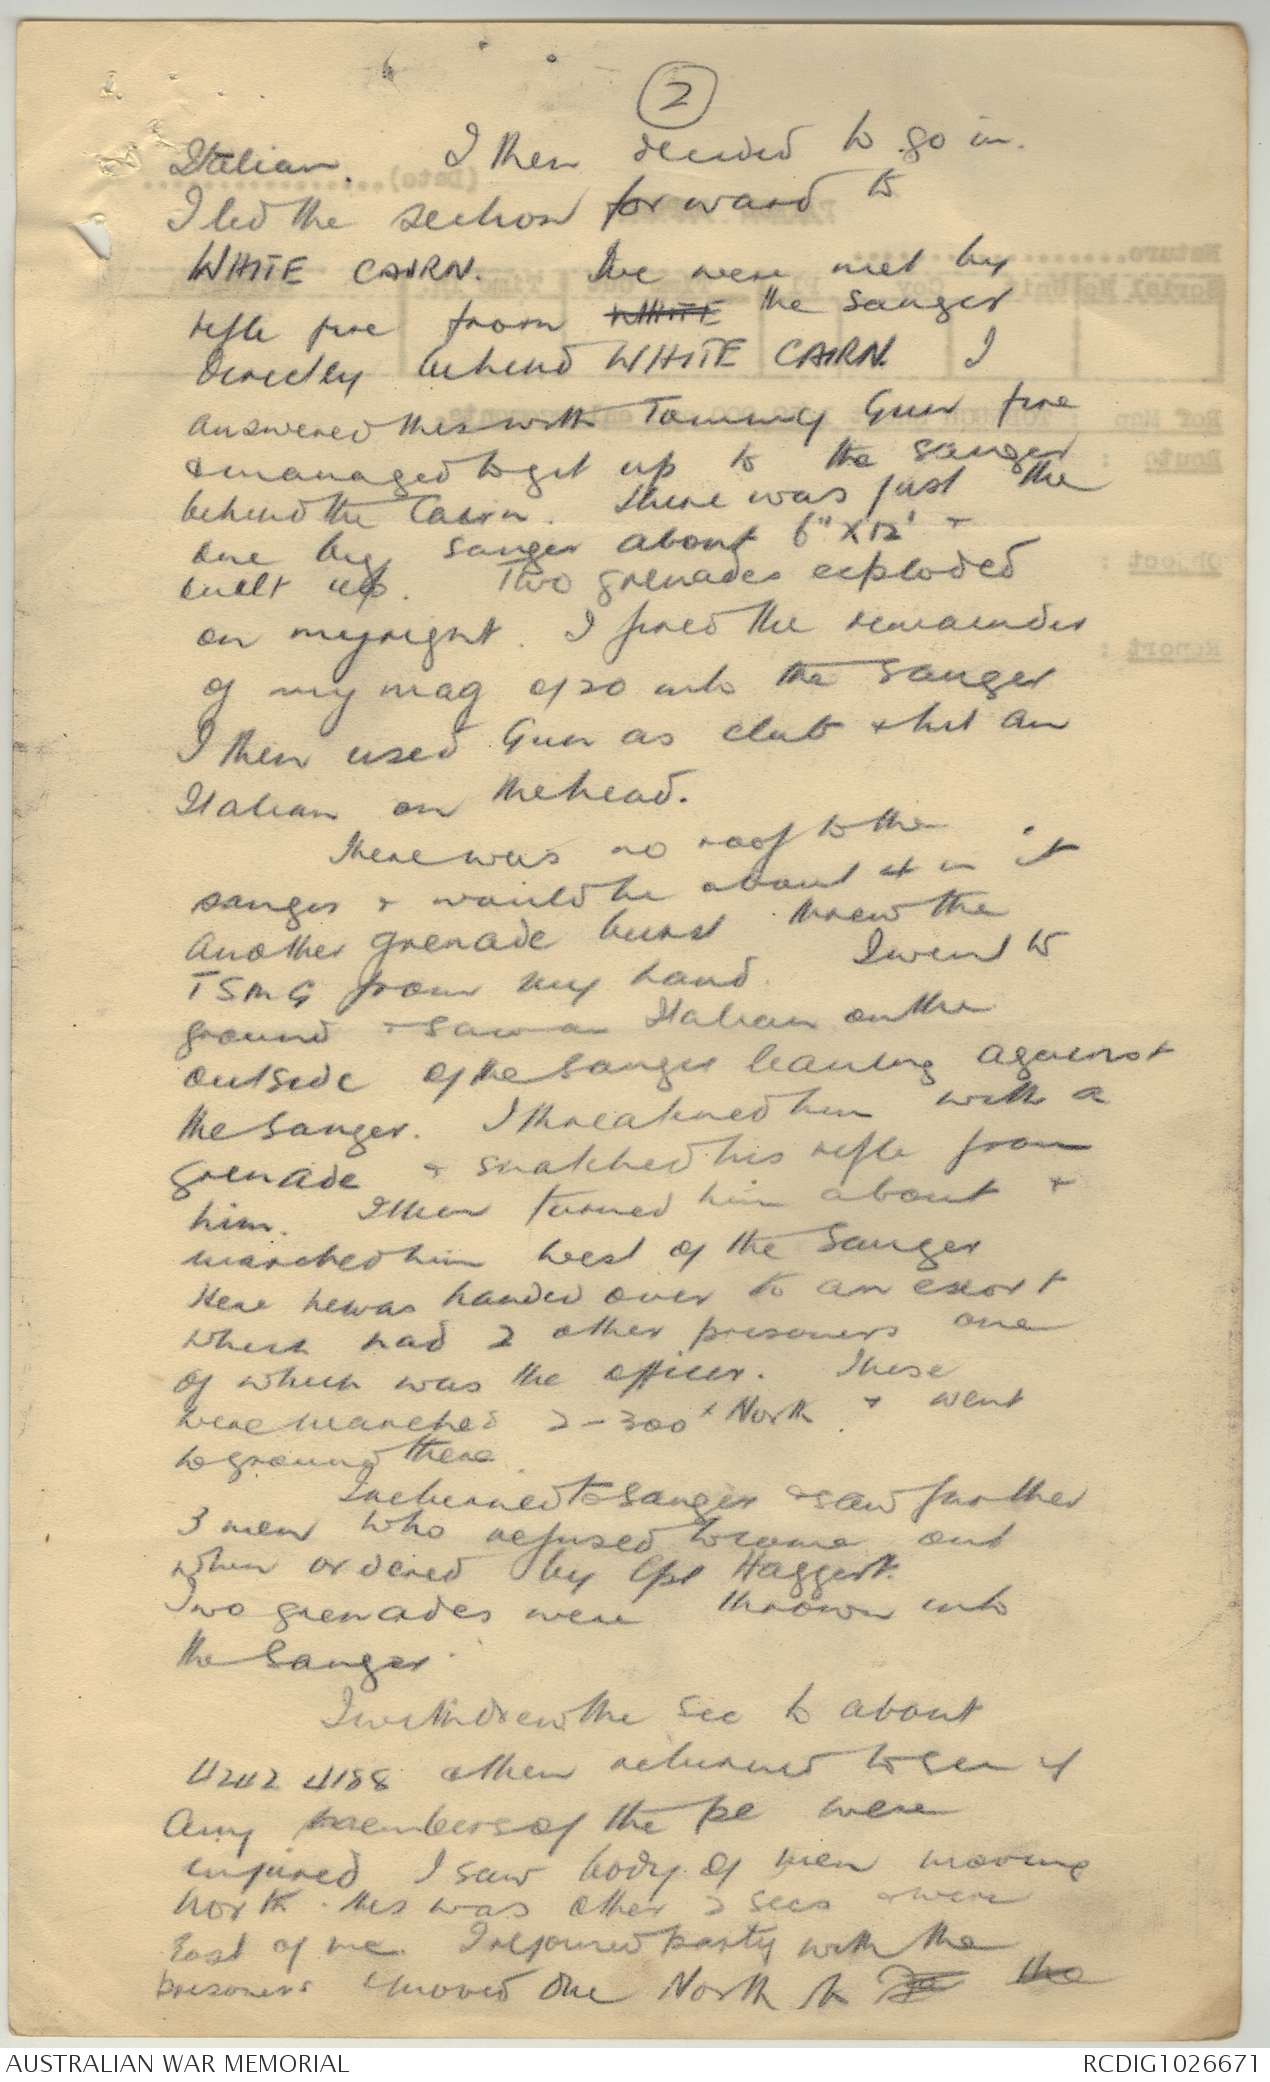 2
Italian. I then decided to go in.
I led the section forward to
WHITE CAIRN. We were met by
rifle fire from WHITE the sanger
directly behind WHITE CAIRN. I
answered this with Tommy Gun fire
& managed to get up to the sanger
behind the Cairn. There was just the
one big sanger about 6" X 12' &
built up. Two grenades exploded
on my right. I fired the remainder
of my mag of 20 into the sanger
I then used Gun as club & hit an
Italian on the head.
There was no roof to the
sanger & would be about 4 in it
Another grenade burst threw the
TSMG from my hand. I went to
ground & saw an Italian on the
outside of the sanger leaning against
the sanger. I threatened him with a
grenade & snatched his rifle from
him. I then turned him about &
marched him west of the sanger
Here he was handed over to an escort
which had 2 other prisoners one
of which was the officer. These
were marched 2-300x North & went
to ground there.
I returned to sanger & saw further
3 men who refused to come out
when ordered by Cpl Haggert.
Two grenades were thrown into
the sanger.
I withdrew the sec to about
4242 4188 & then returned to see if
Any members of the were
injured I saw body of men moving
North. this was other 2 secs & were
East of me. I rejoined party with the
prisoners & moved due North the
(Date)
Nature
Serial No
Ref Map
Route :
Object :
Report :
AUSTRALIAN WAR MEMORIAL
RCDIG1026671